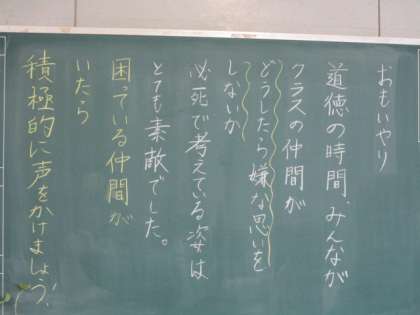 おもいやり
道徳の時間、みんなが
クラスの仲間が
どうしたら嫌な思いを
しないか
必死で考えている姿は
とても素敵でした。
困っている仲間が
いたら
積極的に声をかけましょう!